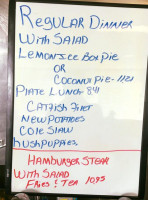 Regular Dinner
With Salad
Lemon Ice Box Pie
or
Coconut Pie - 1121
Plate Lunch 841
Catfish Filet
New Potatoes
Cole Slaw
Hushpuppies
Hamburger Steak
With Salad
Fries & Tea 1095